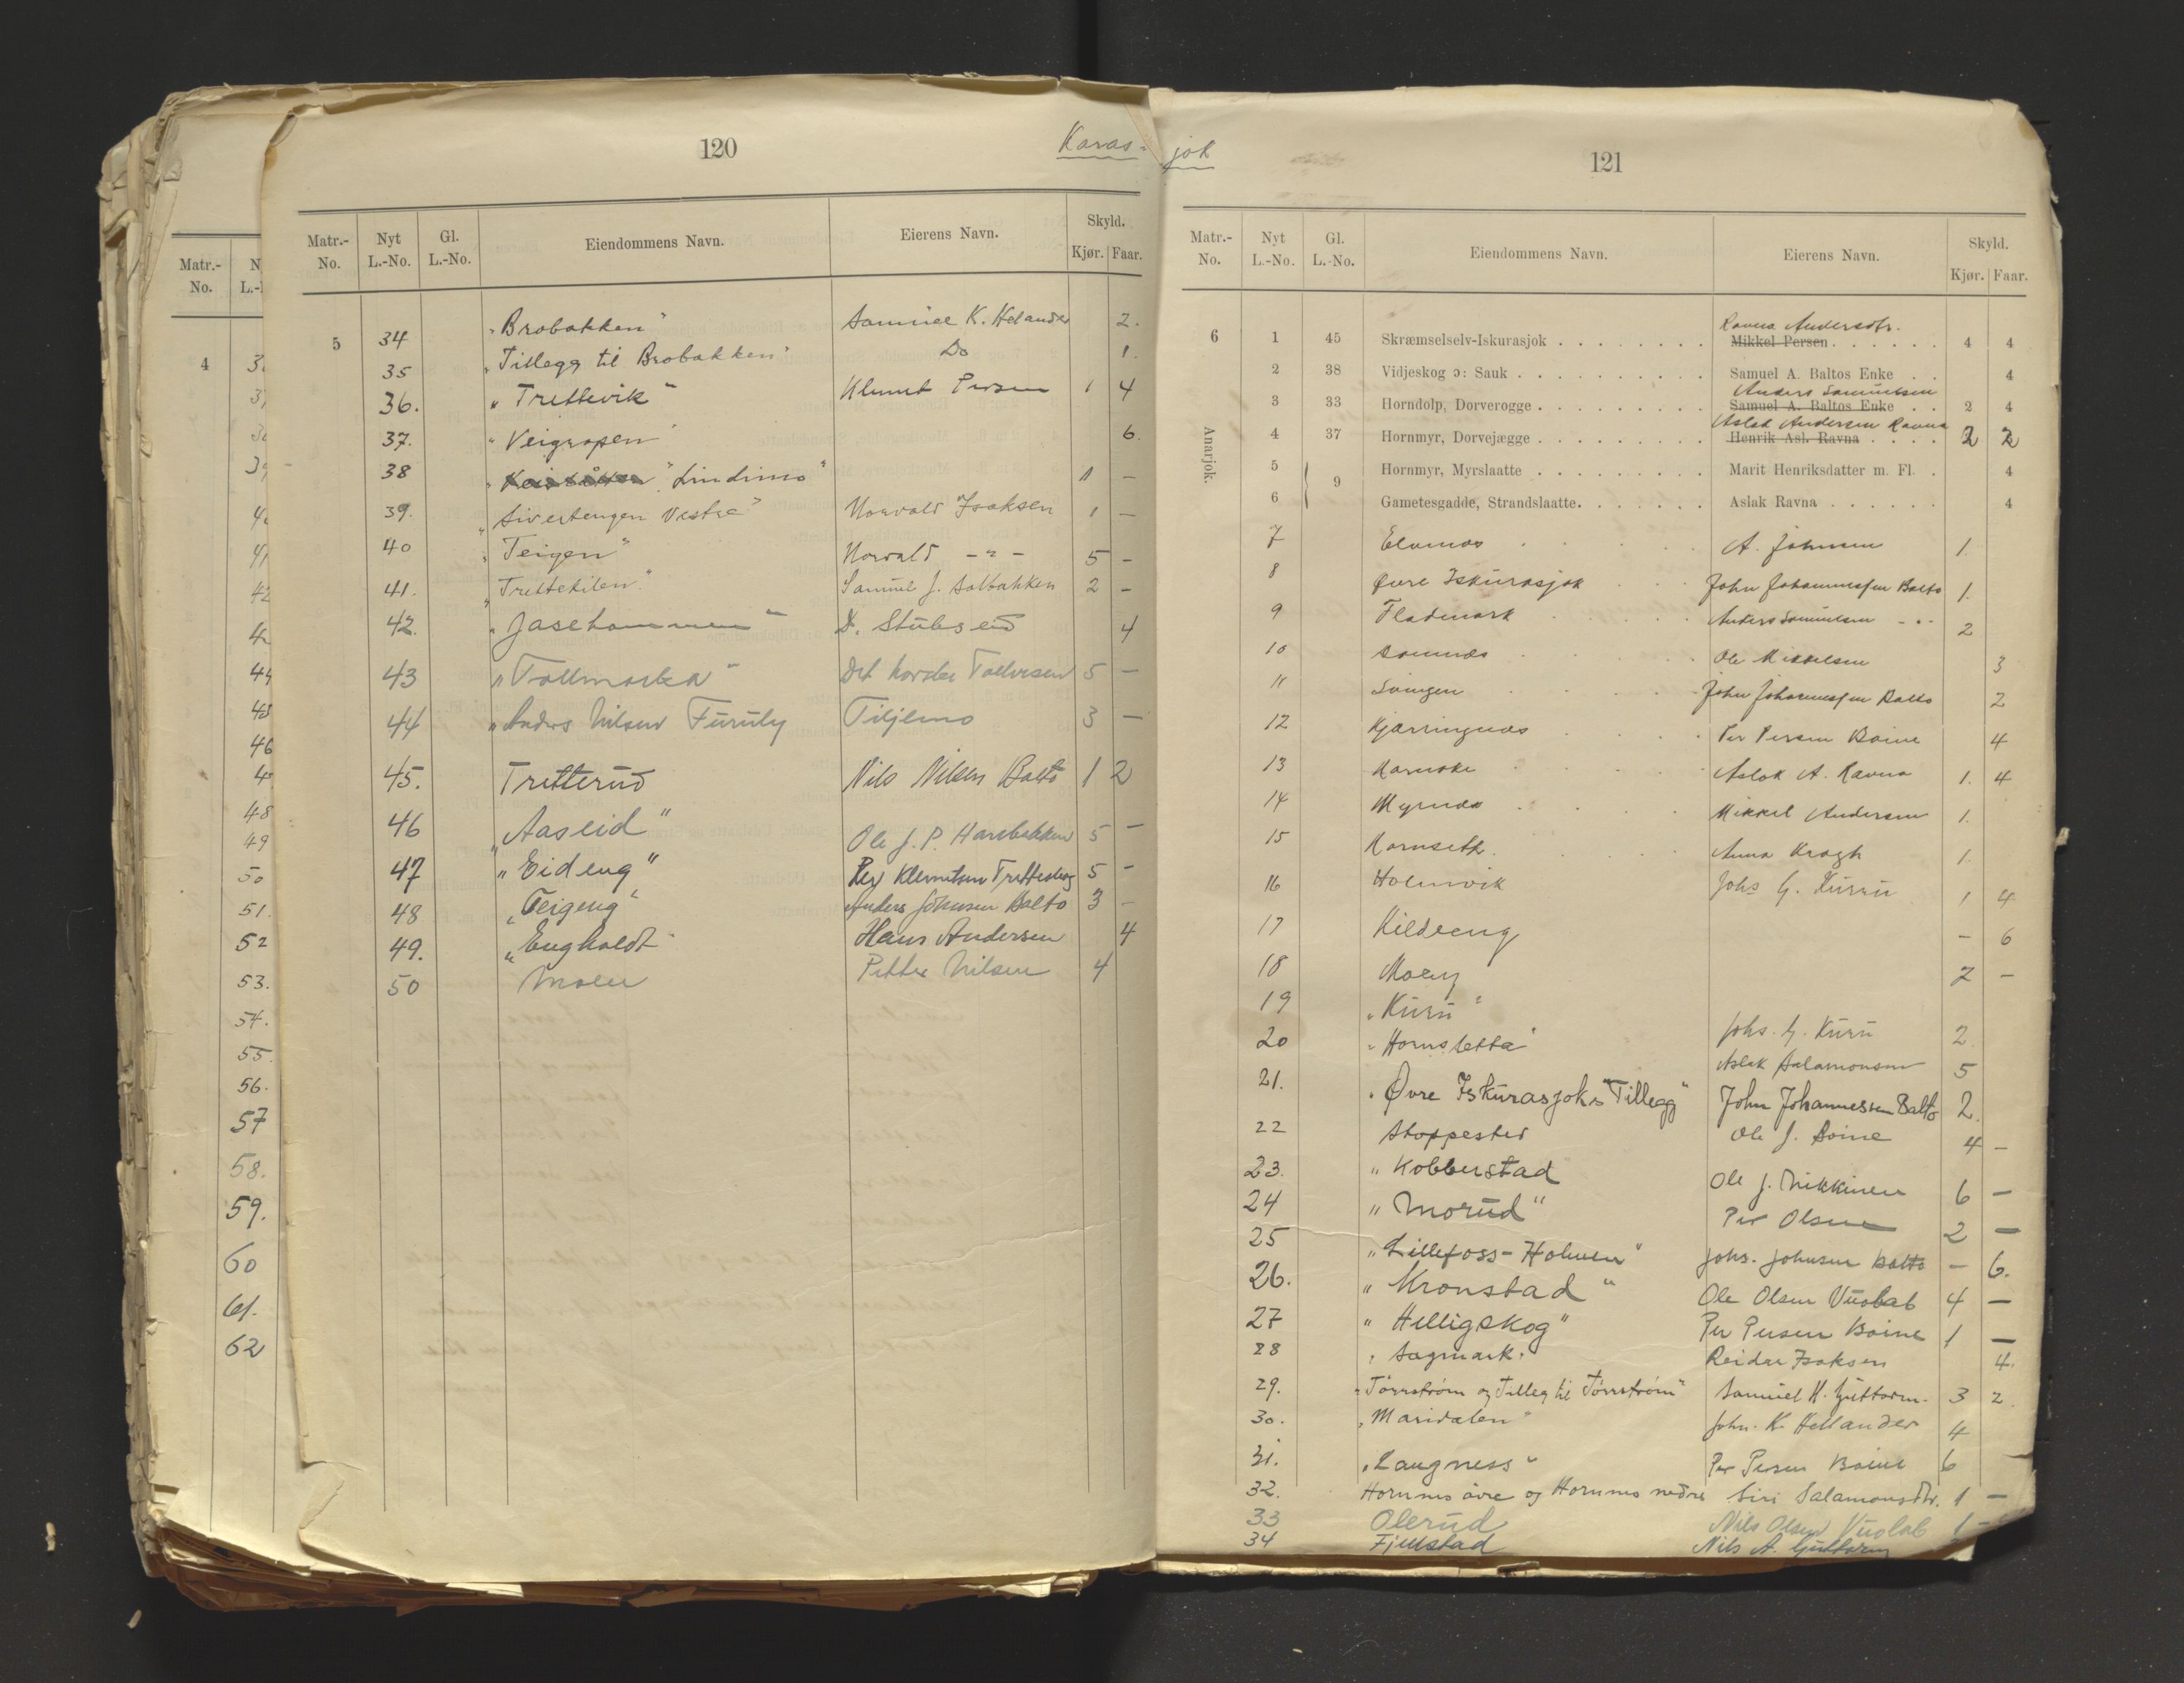 Matr.-No. N L.-
4 3
3
3
39
4
41
42
4
44
48
46
4
48
49
50
51.
52
53.
54.
55.
56.
57
58.
59.
60
61.
62
120
Karas-
Matr.-No. Nyt L.-No. Gl. L.-No. Eiendommens Navn. Eierens Navn. Skyld. Kjør. Faar.
5 34 „Brobakken" Samuel K. Helander 2.
35 „Tillegg til Brobakken" Do 1.
36. „Trettevik" Klemet Persen 1 4
37. „Veigropen" 6.
38 „Lindimo" 1 –
39. „Sivertengen Vestre" Norvald Isaksen 1 –
40 „Teigen" Norvald –"– 5 –
41. „Trettekilen" Samuel J. Solbakken 2 –
42. „Jasehammen" D. Stubseid 4
43 „Tollmarka" Det norske Tollvesen 5 –
44 „Anders Nilsen Furuly Tiljemo 3 –
45. Tretterud Nils Nilsen Balto 1 2
46 „Aaseid" Ole J. P. Harrbakken 5 –
47 „Eideng" Per Klemetsen Tretteskog 5 –
48 „Teigeng" Anders Johnsen Balto 3 –
49. „Engholdt" Hans Andersen 4
50 Moen Petter Nilsen 4
jok
121
Matr.-No. Nyt L.-No. Gl. L.-No. Eiendommens Navn. Eierens Navn. Skyld. Kjør. Faar.
Anarjok.
Ravna Andersdtr.
6 1 45 Skræmselselv-Iskurasjok . . . . . . . . Mikkel Persen . . . . . . 4 4
2 38 Vidjeskog ɔ: Sauk . . . . . . . . . . Samuel A. Baltos Enke . . 4
Anders Samuelsen
3 33 Horndolp, Dorverogge . . . . . . . . . Samuel A. Baltos Enke . . 2 4
Aslak Andersen Ravna
4 37 Hornmyr, Dorvejægge . . . . . . . . . Henrik Asl. Ravna . . . . 2 2
5 9 Hornmyr, Myrslaatte . . . . . . . . . Marit Henriksdatter m. Fl. . 4
6 Gametesgadde, Strandslaatte. . . . . . . Aslak Ravna . . . . . . 4
7 Elvenes A. Johnsen 1.
8 Øvre Iskurasjok John Johannessen Balto 1.
9 Fladmark Anders Samuelsen –"– 2
10 Ole Mikkelsen 3
11 Svingen John Johannessen Balto 2
12 Kjærringnes Per Persen Boine 4
13 Aslak A. Ravna 1. 4
14 Myrnes Mikkel Andersen 1.
15 Hornseth Anna Kragh 1.
16 Holmvik Johs G. Kuru 1 4
17 Kildeeng – 6
18 Moeng 2 –
19 „Kuru" Johs. G. Kuru 2
20 „Hornsletta" Aslak Salamonsen 5
21. „Øvre Iskurasjoks Tillegg" John Johannessen Balto 2.
22 Stoppested Ole J. Boine 4 –
23. „Kobberstad Ole J. Nikkinen 6 –
24 „Morud" Per Olsen 2 –
25 „Lillefoss-Holmen" Johs. Johnsen Balto – 6.
26. „Kronstad" Ole Olsen Vuolab 4 –
27 „Helligskog" Per Persen Boine 1 –
28 „Sagmark" Reidar Isaksen 4.
29. „Tørrstrøm og Tilleg til Tørrstrøm" Samuel H. Guttorm. 3 2.
30. „Maridalen" John. K. Hellander 4
31. „Langness" Per Persen Boine 6
32. Hornnes øvre og Hornnes nedre Siri Salamonsdtr. 1 –
33 Olerud Nils Olsen Vuolab 1 –
34 Fjellstad Nils A. Guttorm